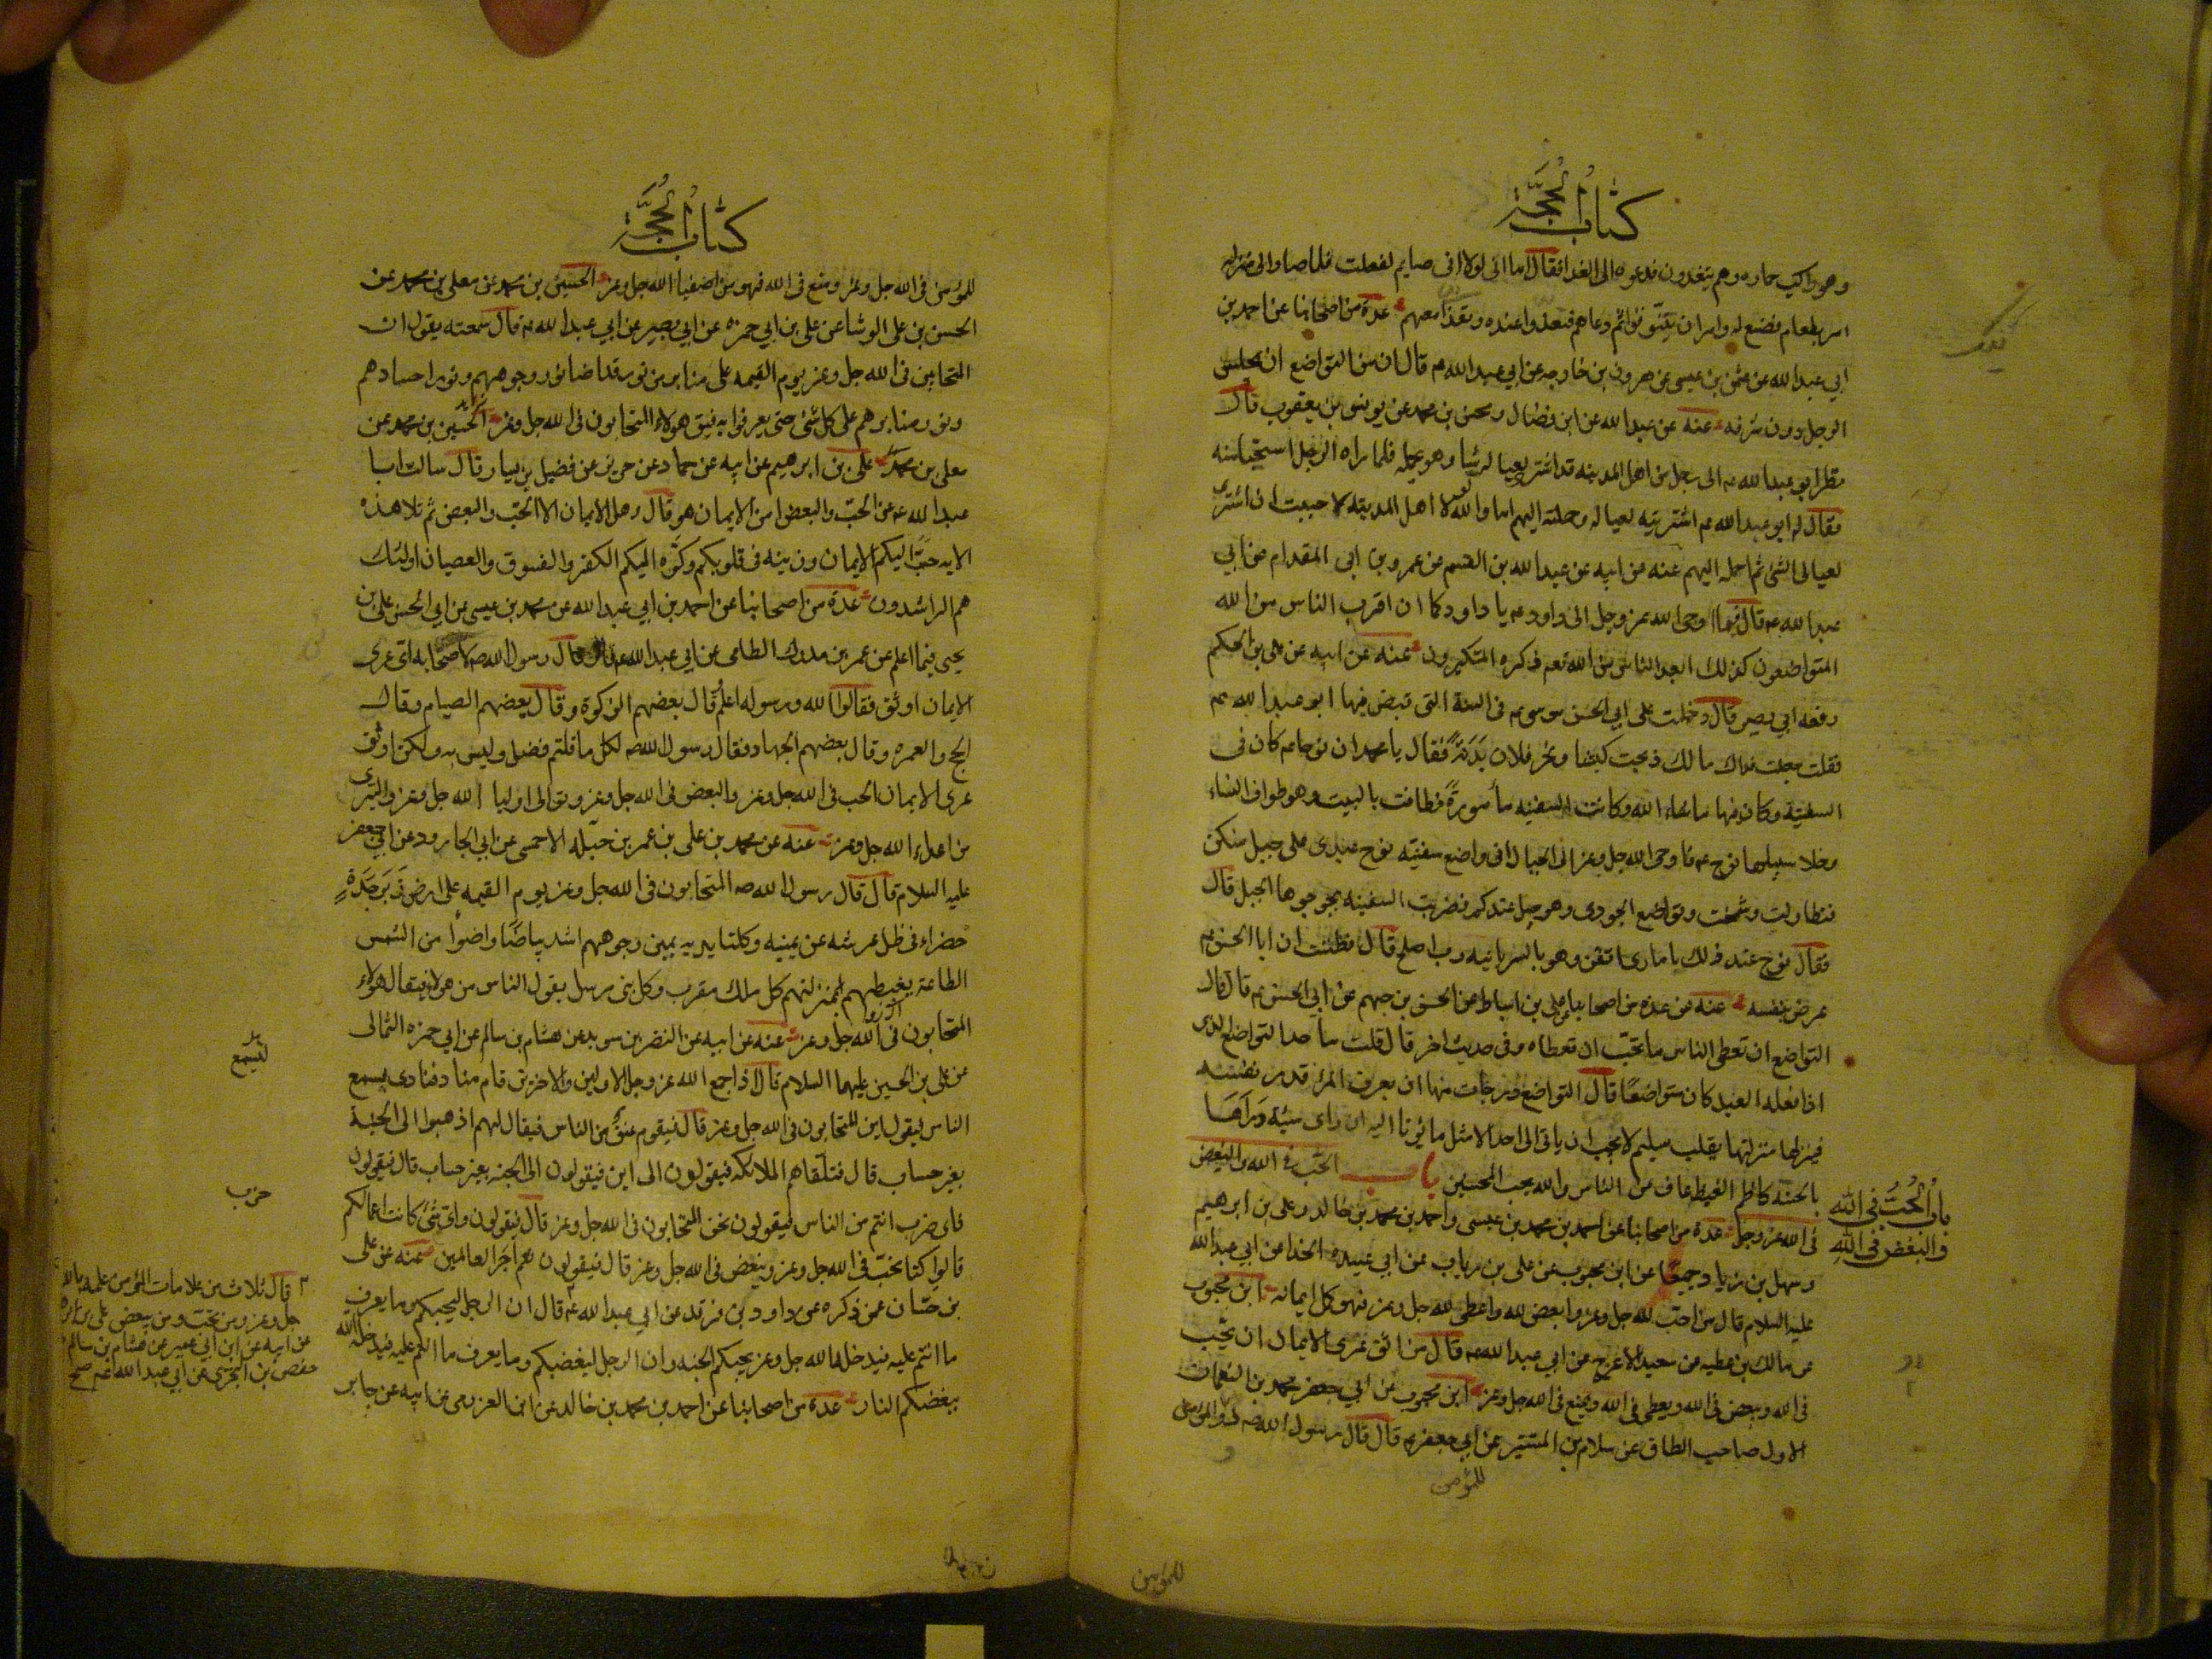 كتاب الحجة
وهو راكب حماره وهم يتغدون فدعوه الى الغدا فقال اما انى لولا انى صايم لفعلت فلما صار الى منزله
امر بطعام فصنع له وامر ان يتنوقوا ثم دعاهم فتغدوا عنده وتغذا معهم عدة من اصحابنا عن احمد بن
ابي عبد الله عن عثمن بن عيسى عن هرون بن خارجه عن ابي عبد الله ع قال ان من التواضع ان يجلس
الرجل دون شرفه عنه عن عبد الله عن ابن فضال ومحسن بن محمد عن يونس بن يعقوب قال
نظر ابو عبد الله ع الى رجل من اهل المدينه قد اشترى لعياله شيا وهو يحمله فلما راه الرجل استحيا منه
فقال له ابو عبد الله ع اشتريته لعيالك وحملته اليهم اما والله لولا اهل المدينه لاحببت ان اشترى
لعيالى الشئ ثم احمله اليهم عنه عن ابيه عن عبد الله بن القسم عن عمرو بن ابى المقدام عن ابي
عبد الله ع قال فيما اوحى الله عز وجل الى داود ع يا داود كما ان اقرب الناس من الله
المتواضعون كذلك ابعد الناس من الله تعم ذكره المتكبرون عنه عن ابيه عن على بن الحكم
رفعه ابي بصير قال دخلت على ابي الحسن موسى ع فى السنة التى قبض فيها ابو عبد الله ع
فقلت جعلت فداك مالك ذبحت كبشا ونحر فلان بدنة فقال يا محمد ان نوحا ع كان فى
السفينة وكان فيها ما شاء الله وكانت السفينه مأمورة فطافت بالبيت وهو طواف النساء
وخلا سبيلها نوح ع فاوحى الله جل وعز الى الجبال انى واضع سفينه نوح عبدى على جبل منكن
فتطاولت وشمخت وتواضع الجودى وهو جبل عندكم فضربت السفينه بجوجوها الجبل قال
فقال نوح عند ذلك يا مارى اتقن وهو بالسريانيه رب اصلح قال فظننت ان ابا الحسن ع
عرض بنفسه عنه عن عدة من اصحابنا عن على بن اسباط عن الحسن بن جهم عن ابي الحسن ع قال قال
التواضع ان تعطى الناس ما تحب ان تعطاه وفى حديث اخر قال قلت ما حد التواضع الذى
اذا فعله العبد كان متواضعا قال التواضع درجات منها ان يعرف المرء قدر نفسه
فينزلها منزلتها بقلب سليم لا يحب ان ياتى الى احد الا مثل ما يوتا اليه ان راى سيئه درأها
بالحسنه كاظم الغيظ عاف عن الناس والله يحب المحسنين باب الحب فى الله والبغض
باب الحب فى الله
والبغض فى الله
فى الله عز وجل عدة من اصحابنا عن احمد بن محمد بن عيسى واحمد بن محمد بن خالد وعلى بن ابرهيم
وسهل بن زياد جميعا عن ابن محبوب عن على بن رياب عن ابي عبيده الحذا عن ابي عبد الله
عليه السلام قال من احب لله جل وعز وابغض لله واعطى لله جل وعز فهو كمل ايمانه ابن محبوب
عن مالك بن عطيه عن سعيد الاعرج عن ابي عبد الله ع قال من اوثق عرى الايمان ان يحب
فى الله ويبغض فى الله ويعطى فى الله ويمنع فى الله جل وعز ابن محبوب عن ابي جعفر محمد بن النعمان
الاول صاحب الطاق عن سلام بن المستنير عن ابي جعفر ع قال قال رسول الله ص ود المؤمن
للمؤمن
للمؤمن
كتاب الحجة
للمؤمن فى الله جل وعز ومنع فى الله فهو من اصفيا الله جل وعز الحسين بن محمد عن معلى بن محمد عن
الحسن بن على الوشا عن على بن ابي حمزه عن ابي بصير عن ابي عبد الله ع قال سمعته يقول ان
المتحابين فى الله جل وعز يوم القيمه على منابر من نور قد اضا نور وجوههم ونور اجسادهم
ونور منابرهم على كل شئ حتى يعرفوا به فيق هولاء المتحابون فى الله جل وعز الحسين بن محمد عن
معلى بن محمد على بن ابرهيم عن ابيه عن حماد عن حريز عن فضيل بن يسار قال سالت ابا
عبد الله ع عن الحب والبغض امن الايمان هو قال وهل الايمان الا الحب والبغض ثم تلا هذه
الايه حبب اليكم الايمان وزينه فى قلوبكم وكره اليكم الكفر والفسوق والعصيان اولئك
هم الراشدون عدة من اصحابنا عن احمد بن ابي عبد الله عن محمد بن عيسى عن ابي الحسن على بن
يحيى فيما اعلم عن عمر بن مدرك الطاى عن ابي عبد الله ع قال قال رسول الله ص لاصحابه اى عرى
الايمان اوثق فقالوا الله ورسوله اعلم قال بعضهم الزكوة وقال بعضهم الصيام وقال
الحج والعمره وقال بعضهم الجهاد فقال رسول الله ص لكل ما قلتم فضل وليس به ولكن اوثق
عرى الايمان الحب فى الله جل وعز والبغض فى الله جل وعز وتوالى اوليا الله جل وعز والتبرى
من اعداء الله جل وعز عنه عن محمد بن على بن عمر بن جبله الاحمسى عن ابي الجارود عن ابي جعفر
عليه السلام قال قال رسول الله ص المتحابون فى الله جل وعز يوم القيمه على ارض زبرجدة
خضراء فى ظل عرشه عن يمينه وكلتا يديه يمين وجوههم اشد بياضا واضوأ من الشمس
الطالعة يغبطهم بمنزلتهم كل ملك مقرب وكل نبى مرسل يقول الناس من هولاء فيقال هولاء
المتحابون فى الله جل وعز عنه عن ابيه عن النضر بن سويد عن هشام بن سالم عن ابي حمزه الثمالى
عن على بن الحسين عليهما السلام قال اذا جمع الله عز وجل الاولين والاخرين قام مناد فنادى يسمع
ليسمع
الناس فيقول اين المتحابون فى الله جل وعز قال فيقوم عنق من الناس فيقال لهم اذهبوا الى الجنة
بغير حساب قال فتلقاهم الملائكه فيقولون الى اين فيقولون الى الجنه بغير حساب قال فيقولون
حزب
فاى ضرب انتم من الناس فيقولون نحن المتحابون فى الله جل وعز قال فيقولون واى شئ كانت اعمالكم
قالوا كنا نحب فى الله جل وعز ونبغض فى الله جل وعز قال فيقولون نعم اجر العاملين عنه عن على
بن حسان عمن ذكره عن داود بن فرقد عن ابي عبد الله ع قال ان الرجل ليحبكم وما يعرف
ما انتم عليه فيدخله الله جل وعز بحبكم الجنه وان الرجل ليبغضكم وما يعرف ما انتم عليه فيدخله الله
ببغضكم النار عدة من اصحابنا عن احمد بن محمد بن خالد عن ابن العزرمى عن ابيه عن جابر
قال ثلاث من علامات المؤمن علمه بالله
جل وعز ومن يحب ومن يبغض على بن ابرهيم
عن ابيه عن ابن ابي عمير عن هشام بن سالم
حفص بن البخترى عن ابي عبد الله ع صح